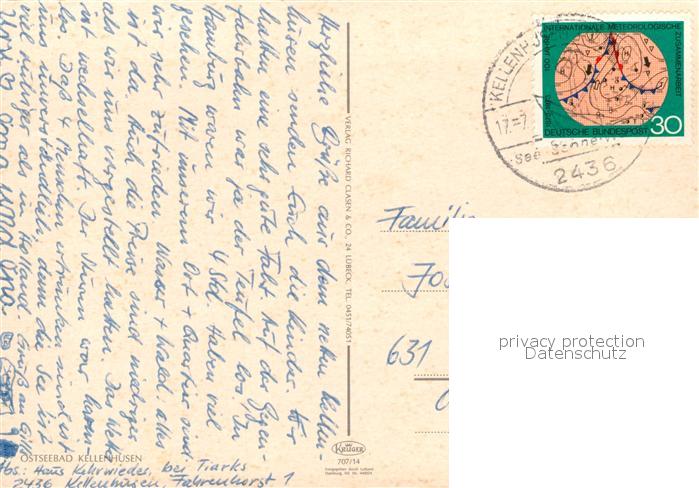 Herzliche Grüße aus dem netten Kellen-
husen senden Euch die Kinder. Wir
hatten eine sehr gute Fahrt. Auf der Gegen-
fahrbahn war ja der Teufel los. In
Hamburg waren wir 4 Std. Haben viel
gesehen. Mit unserem Ort + Quartier sind
wir sehr zufrieden. Wasser + Wald. alles
ist da. Auch die Preise sind niedriger
als wir uns vorgestellt hatten. Das Wetter
ist wechselhaft. Der Sturm war
das 4 Menschen ertrunken sind ist
uns unverständlich, denn die See ist
viel ruhiger als in Holland. Gruß an
Oma
OSTSEEBAD KELLENHUSEN
Abs: Hans Kehrwieder, bei Tiarks
2436 Kellenhusen, Fahrenhorst 1
VERLAG RICHARD CLASEN & CO., 24 LÜBECK, TEL. 0451/74051
KRÜGER
707/14
KELLENHUS
17.-7.
See
2436
100 JAHRE
INTERNATIONALE METEOROLOGISCHE
ZUSAMMENARBEIT
DEUTSCHE BUNDESPOST
30
Familie
Jos
631
privacy protection
Datenschutz